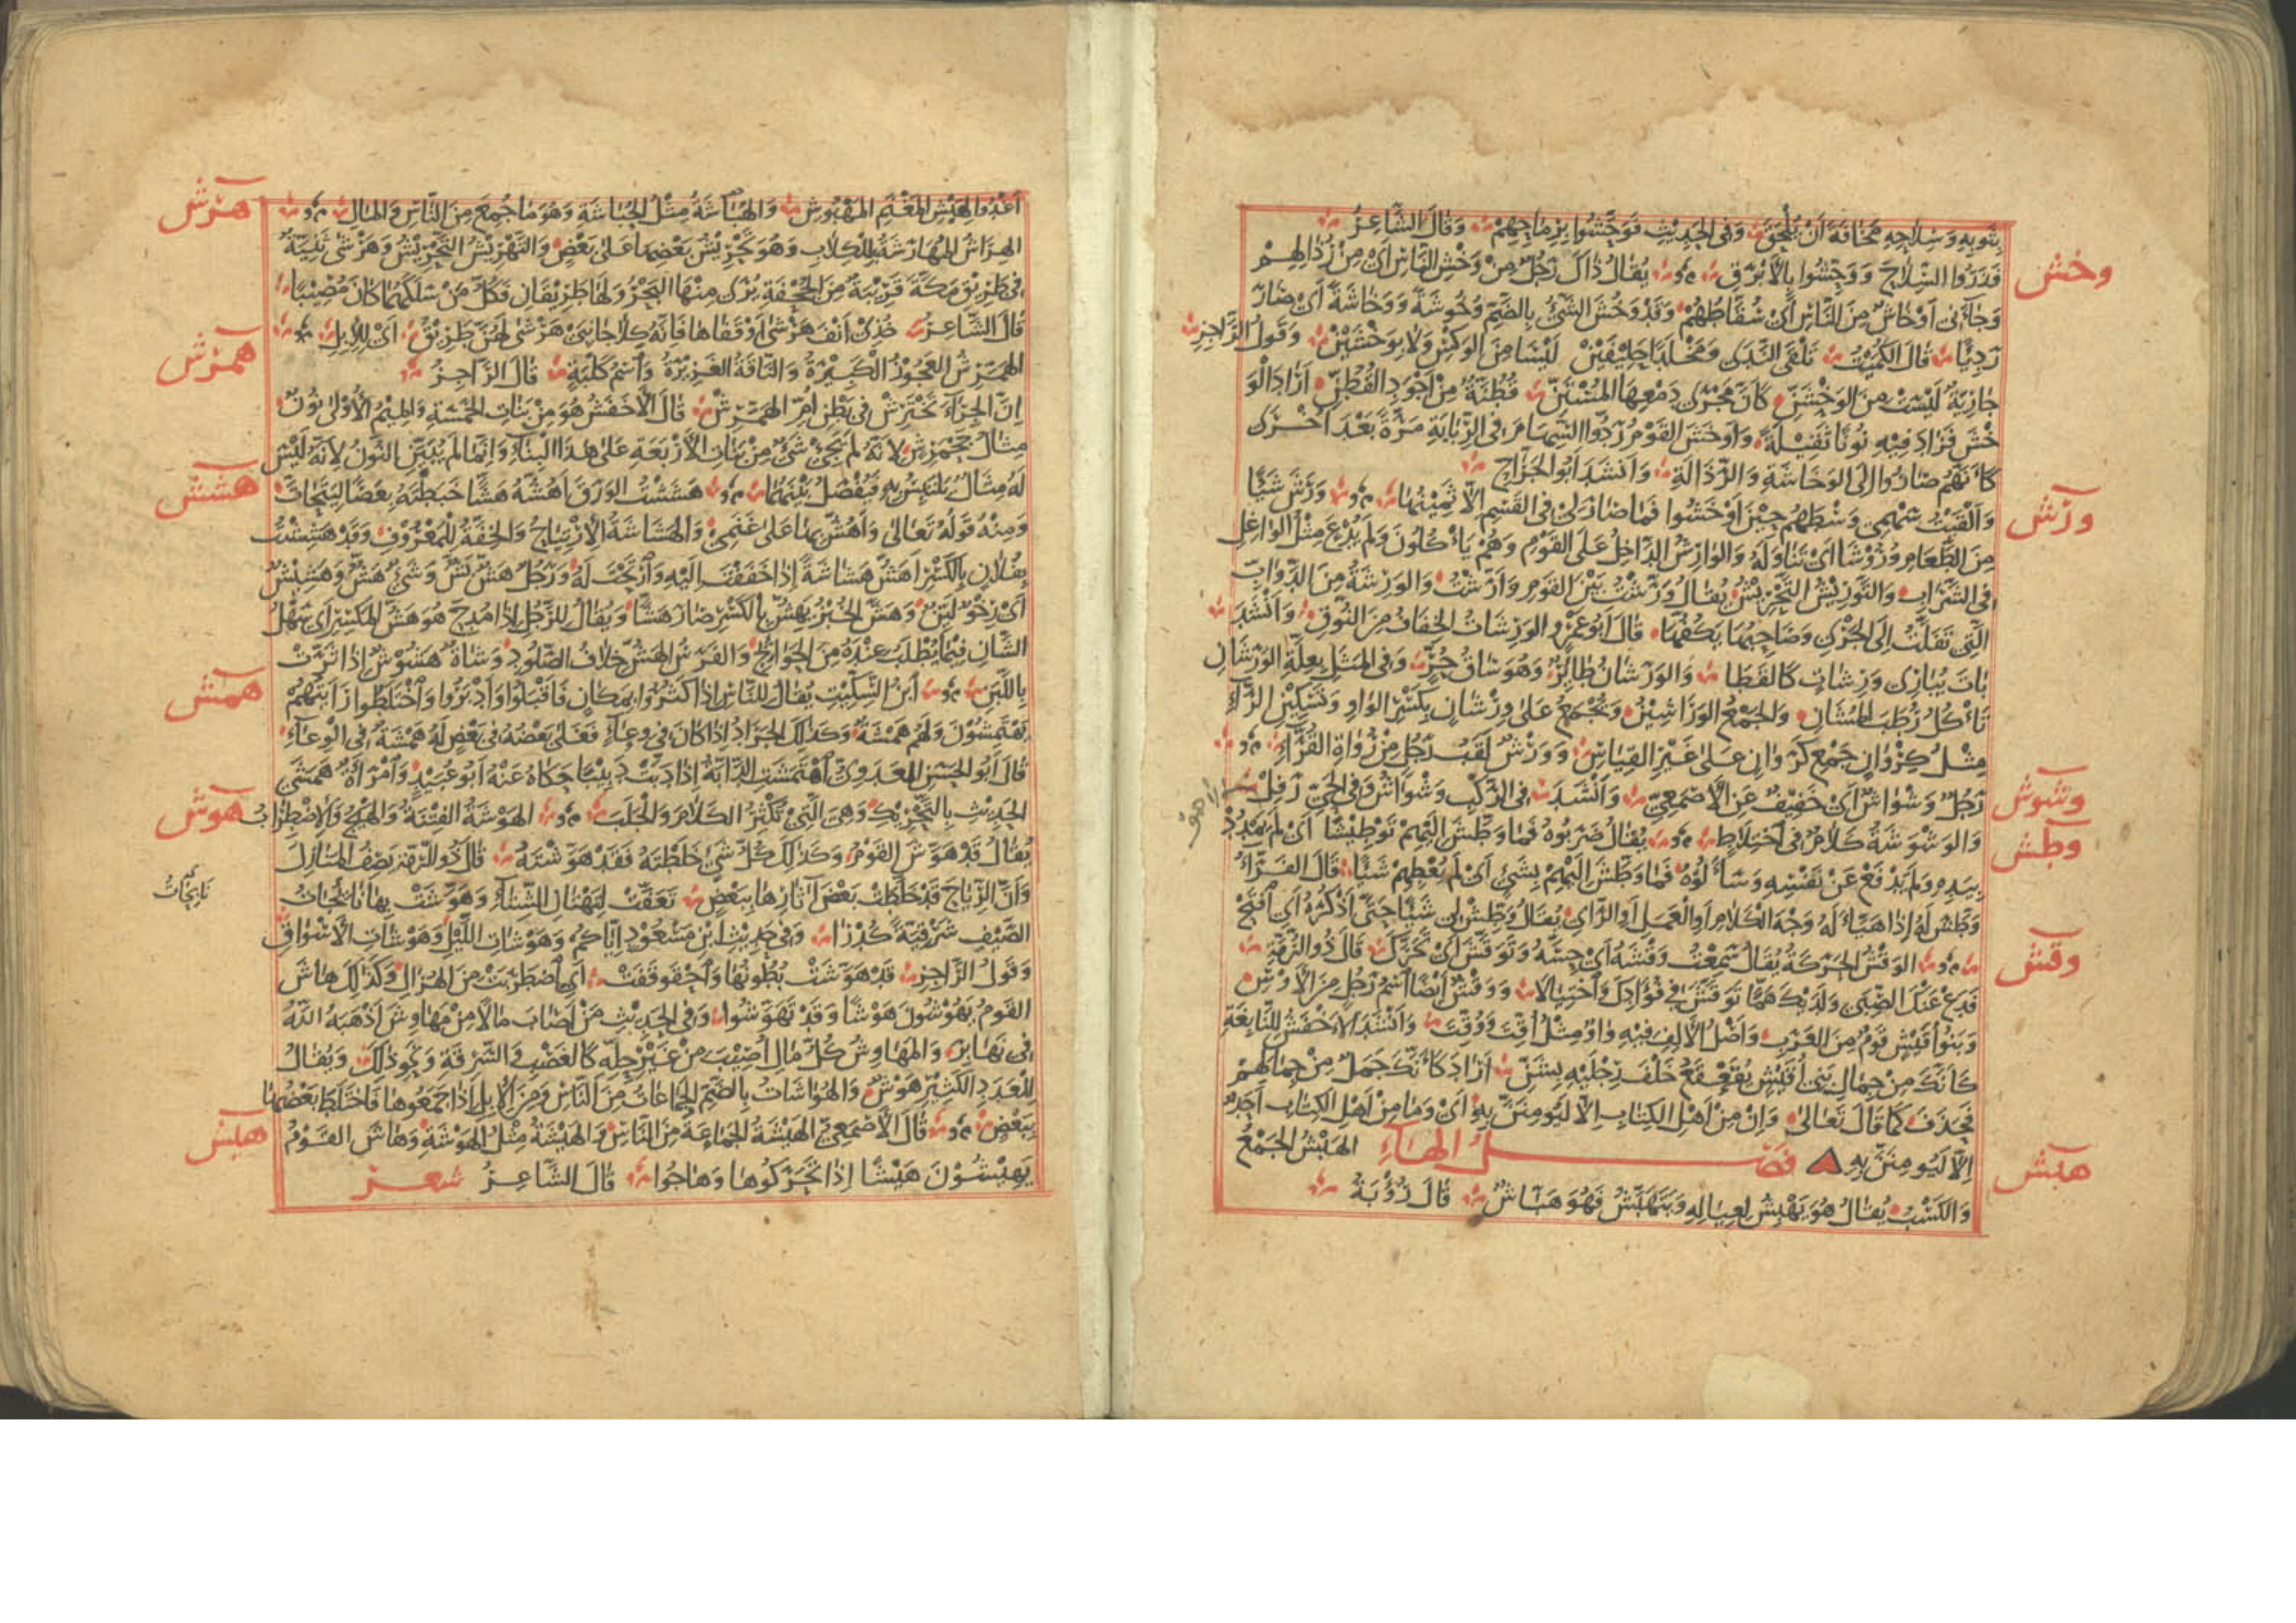 بِثَوْبِهِ وَسِلَاحِهِ مَخَافَةَ أَنْ يُلْحَقَ وَفِي الْحَدِيثِ فَوَحَّشُوا بِرِمَاحِهِمْ وَقَالَ الشَّاعِرُ
وخش
فَذَرُوا السِّلَاحَ وَوَحِّشُوا بِالْأَبْرَقِ يُقَالُ ذَاكَ رَجُلٌ مِنْ وَخْشِ النَّاسِ أَيْ مِنْ رُذَالِهِمْ
وَجَاءَنِي أَوْخَاشٌ مِنَ النَّاسِ أَيْ سُقَّاطُهُمْ وَقَدْ وَخُشَ الشَّيْءُ بِالضَّمِّ وُخُوشَةً وَوَخَاشَةً أَيْ صَارَ
رَدِيًّا قَالَ الْكُمَيْتُ تَلْقَى النَّدَى وَمَخْلَدًا حَلِيفَيْنْ لَيْسَا مِنَ الْوَكْسِ وَلَا بِوَخْشَيْنْ وَقَوْلُ الرَّاجِزِ
جَارِيَةٌ لَيْسَتْ مِنَ الْوَخْشَنِّ كَأَنَّ مَجْرَى دَمْعِهَا الْمُسْتَنِّ قُطْنَةٌ مِنْ أَجْوَدِ الْقُطْنِّ أَرَادَ الْوَ
خْشَ فَزَادَ فِيهِ نُونًا ثَقِيلَةً وَأَوْخَشَ الْقَوْمُ رَدُّوا السِّهَامَ فِي الرِّبَابَةِ مَرَّةً بَعْدَ أُخْرَى
كَأَنَّهُمْ صَارُوا إِلَى الْوَخَاشَةِ وَالرَّذَالَةِ وَأَنْشَدَ أَبُو الْجَرَّاحِ
وَأَلْقَيْتُ سَهْمِي وَسْطَهُمْ حِينَ أَوْخَشُوا فَمَا صَارَ لِي فِي الْقَسْمِ إِلَّا ثَمِينُهَا وَرَشَ شَيْئًا
ورش
مِنَ الطَّعَامِ وُرُوشًا أَيْ تَنَاوَلَهُ وَالْوَارِشُ الدَّاخِلُ عَلَى الْقَوْمِ وَهُمْ يَأْكُلُونَ وَلَمْ يُدْعَ مِثْلُ الْوَاغِلِ
فِي الشَّرَابِ وَالتَّوْرِيشُ التَّحْرِيشُ يُقَالُ وَرَّشْتُ بَيْنَ الْقَوْمِ وَأَرَّشْتُ وَالْوَرِشَةُ مِنَ الدَّوَابِّ
الَّتِي تَفَلَّتُ إِلَى الْجَرْيِ وَصَاحِبُهَا يَكُفُّهَا قَالَ أَبُو عَمْرٍو الْوَرِشَاتُ الْخِفَافُ مِنَ النُّوقِ وَأَنْشَدَ
بَاتَ يُبَارِي وَرِشَاتٍ كَالْقَطَا وَالْوَرَشَانُ طَائِرٌ وَهُوَ سَاقُ حُرٍّ وَفِي الْمَثَلِ بِعِلَّةِ الْوَرَشَانِ
تَأْكُلُ رُطَبَ الْمُشَانِ وَالْجَمْعُ الْوَرَاشِينُ وَيُجْمَعُ عَلَى وِرْشَانٍ بِكَسْرِ الْوَاوِ وَتَسْكِينِ الرَّاءِ
مِثْلُ كِرْوَانٍ جَمْعُ كَرَوَانٍ عَلَى غَيْرِ الْقِيَاسِ وَوَرْشٌ لَقَبُ رَجُلٍ مِنْ رُوَاةِ الْقُرَّاءِ
وشوش
رَجُلٌ وَشْوَاشٌ أَيْ خَفِيفٌ عَنِ الْأَصْمَعِيِّ وَأَنْشَدَ فِي الرَّكْبِ وَشْوَاشٌ وَفِي الْحَيِّ رَفِلْ
وطش
وَالْوَشْوَشَةُ كَلَامٌ فِي اخْتِلَاطٍ يُقَالُ ضَرَبُوهُ فَمَا وَطَّشَ إِلَيْهِمْ تَوْطِيشًا أَيْ لَمْ يَمْدُدْ
بِيَدِهِ وَلَمْ يَدْفَعْ عَنْ نَفْسِهِ وَسَأَلُوهُ فَمَا وَطَّشَ إِلَيْهِمْ بِشَيْءٍ أَيْ لَمْ يُعْطِهِمْ شَيْئًا قَالَ الْفَرَّاءُ
وَطَّشَ لَهُ إِذَا هَيَّأَ لَهُ وَجْهَ الْكَلَامِ أَوِ الْعَمَلِ أَوِ الرَّأْيِ يُقَالُ وَطِّشْ لِي شَيْئًا حَتَّى أَذْكُرَهُ أَيِ افْتَحْ
وقش
الْوَقْشُ الْحَرَكَةُ يُقَالُ سَمِعْتُ وَقْشَهُ أَيْ حِسَّهُ وَتَوَقَّشَ أَيْ تَحَرَّكَ قَالَ ذُو الرُّمَّةِ
فَدَعْ عَنْكَ الصِّبَى وَلَدَيْكَ هَمًّا تَوَقَّشَ فِي فُؤَادِكَ وَاحْتِيَالَا وَوَقْشٌ أَيْضًا اسْمُ رَجُلٍ مِنَ الْأَوْسِ
وَبَنُو أُقَيْشٍ قَوْمٌ مِنَ الْعَرَبِ وَأَصْلُ الْأَلِفِ فِيهِ وَاوٌ مِثْلُ أُقِّتَتْ وَوُقِّتَتْ وَأَنْشَدَ الْأَخْفَشُ لِلنَّابِغَةِ
كَأَنَّكَ مِنْ جِمَالِ بَنِي أُقَيْشٍ يُقَعْقَعُ خَلْفَ رِجْلَيْهِ بِشَنِّ أَرَادَ كَأَنَّكَ جَمَلٌ مِنْ جِمَالِهِمْ
فَحَذَفَ كَمَا قَالَ تَعَالَى وَإِنْ مِنْ أَهْلِ الْكِتَابِ إِلَّا لَيُؤْمِنَنَّ بِهِ أَيْ وَمَا مِنْ أَهْلِ الْكِتَابِ أَحَدٌ
هبش
إِلَّا لَيُؤْمِنَنَّ بِهِ فَصْلُ الْهَاءِ الْهَبْشُ الْجَمْعُ
وَالْكَسْبُ يُقَالُ هُوَ يَهْبِشُ لِعِيَالِهِ وَيَتَهَبَّشُ فَهُوَ هَبَّاشٌ قَالَ رُؤْبَةُ
أَغْدُو الْهَبْشِ الْمَغْنَمِ الْمَهْبُوشِ وَالْهُبَاشَةُ مِثْلُ الْحُبَاشَةِ وَهُوَ مَا جُمِعَ مِنَ النَّاسِ وَالْمَالِ
هرش
الْهِرَاشُ الْمُهَارَشَةُ بِالْكِلَابِ وَهُوَ تَحْرِيشُ بَعْضِهَا عَلَى بَعْضٍ وَالتَّهْرِيشُ التَّحْرِيشُ وَهَرْشَى ثَنِيَّةٌ
فِي طَرِيقِ مَكَّةَ قَرِيبَةٌ مِنَ الْجُحْفَةِ يُرَى مِنْهَا الْبَحْرُ وَلَهَا طَرِيقَانِ فَكُلُّ مَنْ سَلَكَهُمَا كَانَ مُصِيبًا
قَالَ الشَّاعِرُ خُذِي أَنْفَ هَرْشَى أَوْ قَفَاهَا فَإِنَّهُ كِلَا جَانِبَيْ هَرْشَى لَهُنَّ طَرِيقُ أَيْ لِلْإِبِلِ
همرش
الْهَمَّرِشُ الْعَجُوزُ الْكَبِيرَةُ وَالنَّاقَةُ الْغَزِيرَةُ وَاسْمُ كَلْبَةٍ قَالَ الرَّاجِزُ
إِنَّ الْجِرَاءَ تَخْتَرِشْ فِي بَطْنِ أُمِّ الْهَمَّرِشْ قَالَ الْأَخْفَشُ هُوَ مِنْ بَنَاتِ الْخَمْسَةِ وَالْمِيمُ الْأُولَى نُونٌ
مِثَالُ جَحْمَرِشٍ لِأَنَّهُ لَمْ يَجِئْ شَيْءٌ مِنْ بَنَاتِ الْأَرْبَعَةِ عَلَى هَذَا الْبِنَاءِ وَإِنَّمَا لَمْ يُبَيَّنِ النُّونُ لِأَنَّهُ لَيْسَ
هشش
لَهُ مِثَالٌ يَلْتَبِسُ بِهِ فَيُفْصَلُ بَيْنَهُمَا هَشَشْتُ الْوَرَقَ أَهُشُّهُ هَشًّا خَبَطْتُهُ بِعَصًا لِيَتَحَاتَّ
وَمِنْهُ قَوْلُهُ تَعَالَى وَأَهُشُّ بِهَا عَلَى غَنَمِي وَالْهَشَاشَةُ الْاِرْتِيَاحُ وَالْخِفَّةُ لِلْمَعْرُوفِ وَقَدْ هَشِشْتُ
بِفُلَانٍ بِالْكَسْرِ أَهَشُّ هَشَاشَةً إِذَا خَفَفْتَ إِلَيْهِ وَارْتَحْتَ لَهُ وَرَجُلٌ هَشٌّ بَشٌّ وَشَيْءٌ هَشٌّ وَهَشِيشٌ
أَيْ رِخْوٌ لَيِّنٌ وَهَشَّ الْخُبْزُ يَهِشُّ بِالْكَسْرِ صَارَ هَشًّا وَيُقَالُ لِلرَّجُلِ إِذَا مُدِحَ هُوَ هَشُّ الْمَكْسِرِ أَيْ سَهْلُ
الشَّأْنِ فِيمَا يُطْلَبُ عِنْدَهُ مِنَ الْحَوَائِجِ وَالْفَرَسُ الْهَشُّ خِلَافُ الصَّلُودِ وَشَاةٌ هَشُوشٌ إِذَا ثَرَّتْ
همش
بِاللَّبَنِ ابْنُ السِّكِّيتِ يُقَالُ لِلنَّاسِ إِذَا كَثُرُوا بِمَكَانٍ فَأَقْبَلُوا وَأَدْبَرُوا وَاخْتَلَطُوا رَأَيْتُهُمْ
يَهْتَمِشُونَ وَلَهُمْ هَمْشَةٌ وَكَذَلِكَ الْجَرَادُ إِذَا كَانَ فِي وِعَاءٍ فَغَلَى بَعْضُهُ فِي بَعْضٍ لَهُ هَمْشَةٌ فِي الْوِعَاءِ
قَالَ أَبُو الْحَسَنِ الْعَدَوِيُّ اهْتَمَشَتِ الدَّابَّةُ إِذَا دَبَّتْ دَبِيبًا حَكَاهُ عَنْهُ أَبُو عُبَيْدٍ وَامْرَأَةٌ هَمَشَى
هوش
الْحَدِيثِ بِالتَّحْرِيكِ وَهِيَ الَّتِي تُكْثِرُ الْكَلَامَ وَالْجَلَبَ الْهَوْشَةُ الْفِتْنَةُ وَالْهَيْجُ وَالْاِضْطِرَابُ
يُقَالُ قَدْ هَوَّشَ الْقَوْمُ وَكَذَلِكَ كُلُّ شَيْءٍ خَلَطْتَهُ فَقَدْ هَوَّشْتَهُ قَالَ ذُو الرُّمَّةِ يَصِفُ الْمَنَازِلَ
وَأَنَّ الرِّيَاحَ قَدْ خَلَطَتْ بَعْضَ آثَارِهَا بِبَعْضٍ تَعَفَّتْ لِتَهْتَانِ الشِّتَاءِ وَهَوَّشَتْ بِهَا نَائِجَاتُ
نَائِجَاتُ
الصَّيْفِ شَرْقِيَّةً كُدْرَا وَفِي حَدِيثِ ابْنِ مَسْعُودٍ إِيَّاكُمْ وَهَوْشَاتِ اللَّيْلِ وَهَوْشَاتِ الْأَسْوَاقِ
وَقَوْلُ الرَّاجِزِ قَدْ هَوَّشَتْ بُطُونُهَا وَاحْقَوْقَفَتْ أَيِ اضْطَرَبَتْ مِنَ الْهُزَالِ وَكَذَلِكَ هَاشَ
الْقَوْمُ يَهُوشُونَ هَوْشًا وَقَدْ تَهَوَّشُوا وَفِي الْحَدِيثِ مَنْ أَصَابَ مَالًا مِنْ مَهَاوِشَ أَذْهَبَهُ اللَّهُ
فِي نَهَابِرَ وَالْمَهَاوِشُ كُلُّ مَالٍ أُصِيبَ مِنْ غَيْرِ حِلِّهِ كَالْغَصْبِ وَالسَّرِقَةِ وَنَحْوِ ذَلِكَ وَيُقَالُ
لِلْعَدَدِ الْكَثِيرِ هَوْشٌ وَالْهُوَاشَاتُ بِالضَّمِّ الْجَمَاعَاتُ مِنَ النَّاسِ وَمِنَ الْإِبِلِ إِذَا جَمَعُوهَا فَاخْتَلَطَ بَعْضُهَا
هيش
بِبَعْضٍ قَالَ الْأَصْمَعِيُّ الْهَيْشَةُ الْجَمَاعَةُ مِنَ النَّاسِ وَالْهَيْشَةُ مِثْلُ الْهَوْشَةِ وَهَاشَ الْقَوْمُ
يَهِيشُونَ هَيْشًا إِذَا تَحَرَّكُوا وَهَاجُوا قَالَ الشَّاعِرُ شعر